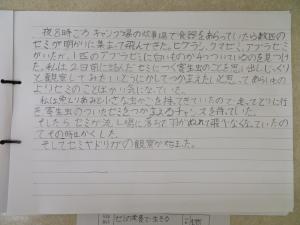 夜8時ごろキャンプ場の炊事場で食器をあらっていたら数匹の
セミが明かりに集まって飛んできた。ヒグラシ、クマゼミ、アブラゼミ
がいたが、1匹のアブラゼミに白いものが4つついているのを見つけ
た。私は2日前に読んだセミにつく寄生虫のことを思い出しじっくり
と観察してみたい、どうにかしてつかまえたいと思ってあらいもの
よりセミのことばかり気になっていた。
私は魚とりあみと小さな虫かごを持ってきていたので走ってとりに行
き寄生虫のついたセミをつかまえるチャンスを待っていた。
そしたらセミが流し場に落ちて羽がぬれて飛べなくなっていたの
でその時つかくした。
そしてセミヤドリガの観察が始まった。
セミの